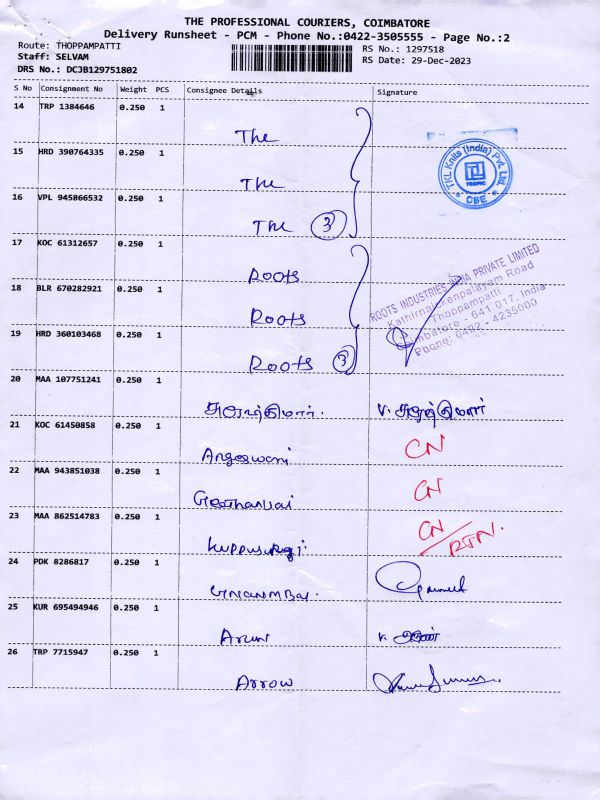 THE PROFESSIONAL COURIERS, COIMBATORE
Delivery Runsheet - PCM - Phone No.:0422-3505555 - Page No.:2
Route: THOPPAMPATTI RS No.: 1297518
Staff: SELVAM RS Date: 29-Dec-2023
DRS No.: DCJB129751802
S No Consignment No Weight PCS Consignee Details Signature
14 TRP 1384646 0.250 1
The
15 HRD 390764335 0.250 1
The
16 VPL 945866532 0.250 1
The 3
TKL Knits (India) Pvt Ltd.
CBE
17 KOC 61312657 0.250 1
Roots
18 BLR 670282921 0.250 1
Roots
19 HRD 360103468 0.250 1
Roots 3
ROOTS INDUSTRIES INDIA PRIVATE LIMITED
Kathirnaickenpalayam Road
Thoppampatti
Coimbatore - 641 017, India
Phone: 0422 - 4235000
20 MAA 107751241 0.250 1
21 KOC 61450858 0.250 1
CN
22 MAA 943851038 0.250 1
CN
23 MAA 862514783 0.250 1
CN/RTN.
24 PDK 8286817 0.250 1
25 KUR 695494946 0.250 1
Arun
26 TRP 7715947 0.250 1
Arrow